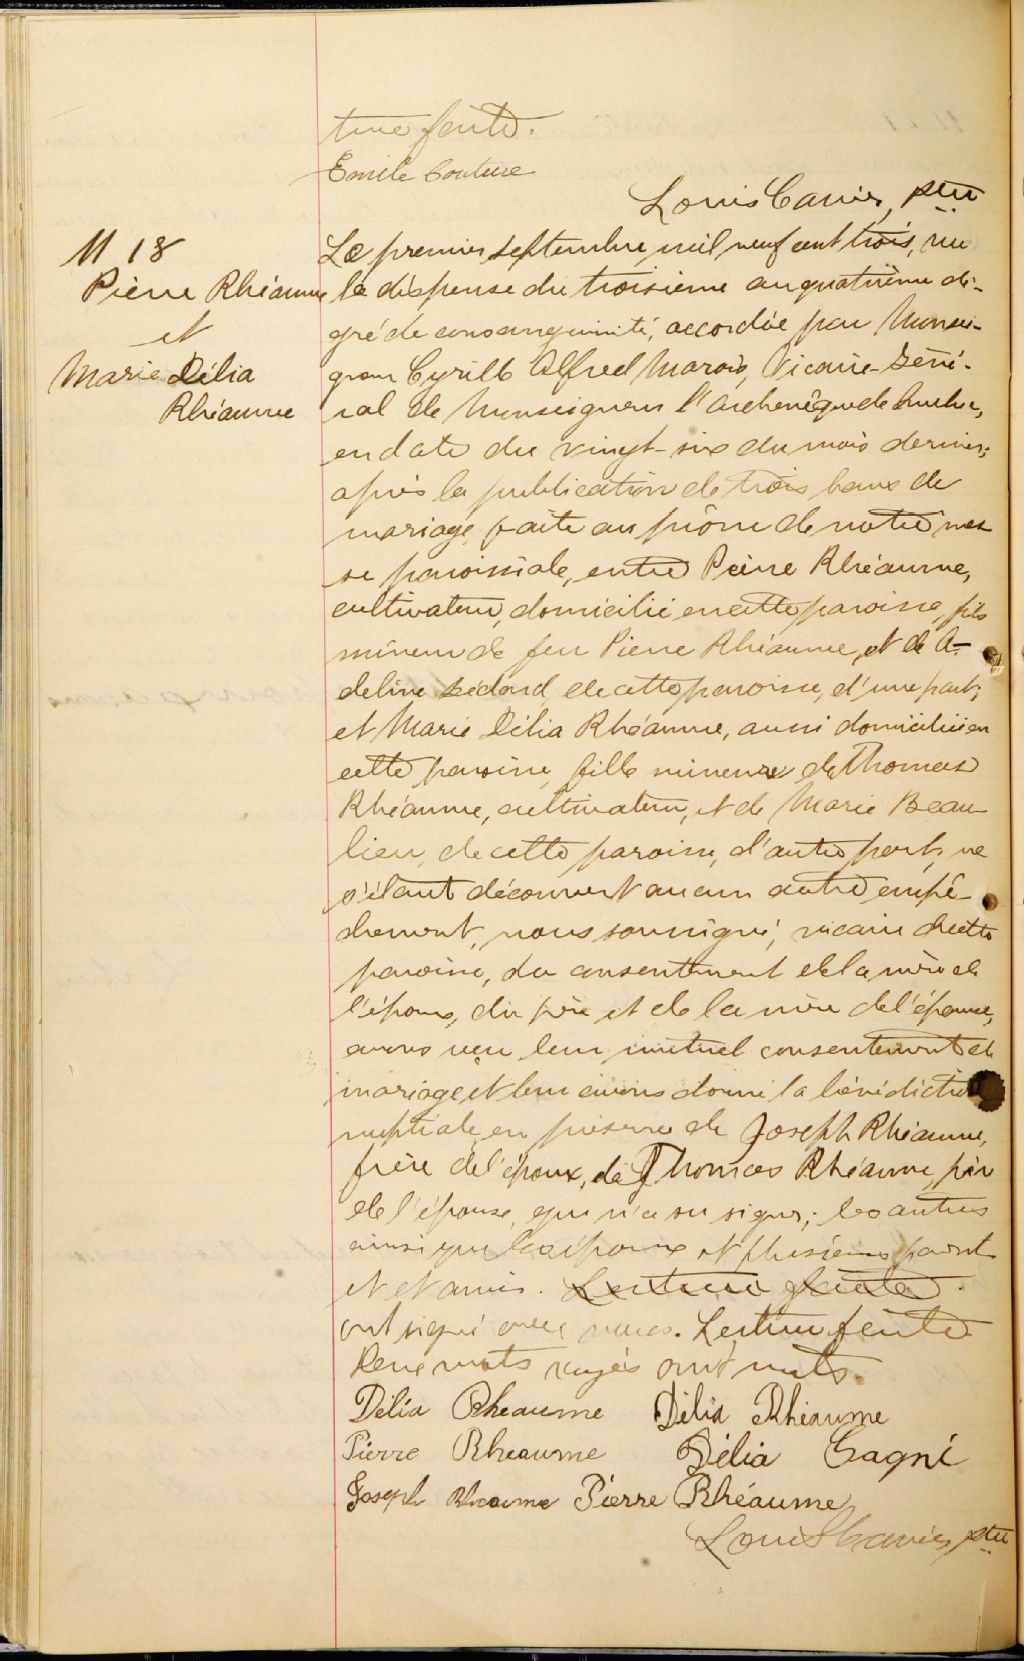 ture faite.
Emile Couture
Louis Cavier, ptre
M 18
Pierre Rhéaume
et
Marie Délia
Rhéaume
Le premier septembre, mil neuf cent trois, vu
la dispense du troisième au quatrième de-
gré de consanguinité, accordée par Monsei-
gneur Cyrille Alfred Marois, Vicaire-Géné-
ral de Monseigneur l'archevêque de Québec,
en date du vingt-six du mois dernier;
après la publication de trois bans de
mariage faite au prône de notre mes
se paroissiale, entre Pierre Rhéaume,
cultivateur, domicilié en cette paroisse, fils
mineur de feu Pierre Rhéaume, et de A-
deline Bédard, de cette paroisse, d'une part;
et Marie Délia Rhéaume, aussi domiciliée en
cette paroisse, fille mineure de Thomas
Rhéaume, cultivateur, et de Marie Beau-
lieu, de cette paroisse, d'autre part; ne
s'étant découvert aucun autre empê-
chement, nous soussigné, vicaire de cette
paroisse, du consentement de la mère de
l'époux, du père et de la mère de l'épouse,
avons reçu leur mutuel consentement de
mariage et leur avons donné la bénédiction
nuptiale en présence de Joseph Rhéaume,
frère de l'époux, de Thomas Rhéaume, père
de l'épouse, qui n'a su signer; les autres
ainsi que les époux et plusieurs parents
et et amis. Lecture faite.
ont signé avec nous. Lecture faite.
Deux mots rayés sont nuls.
Délia Rheaume Délia Rhéaume
Pierre Rheaume Délia Gagné
Joseph Rheaume Pierre Rhéaume
Louis Cavier, ptre